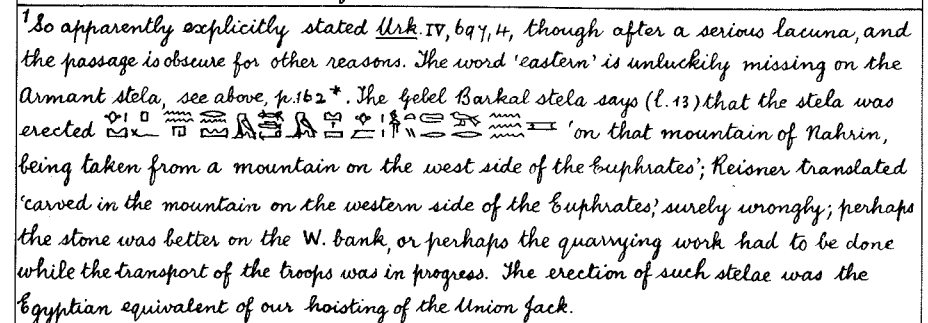 ¹ So apparently explicitly stated Urk. IV, 697, 4, though after a serious lacuna, and
the passage is obscure for other reasons. The word 'eastern' is unluckily missing on the
Armant stela, see above, p.162*. The Gebel Barkal stela says (l.13) that the stela was
erected 'on that mountain of Nahrin,
being taken from a mountain on the west side of the Euphrates'; Reisner translated
'carved in the mountain on the western side of the Euphrates,' surely wrongly; perhaps
the stone was better on the W. bank, or perhaps the quarrying work had to be done
while the transport of the troops was in progress. The erection of such stelae was the
Egyptian equivalent of our hoisting of the Union Jack.